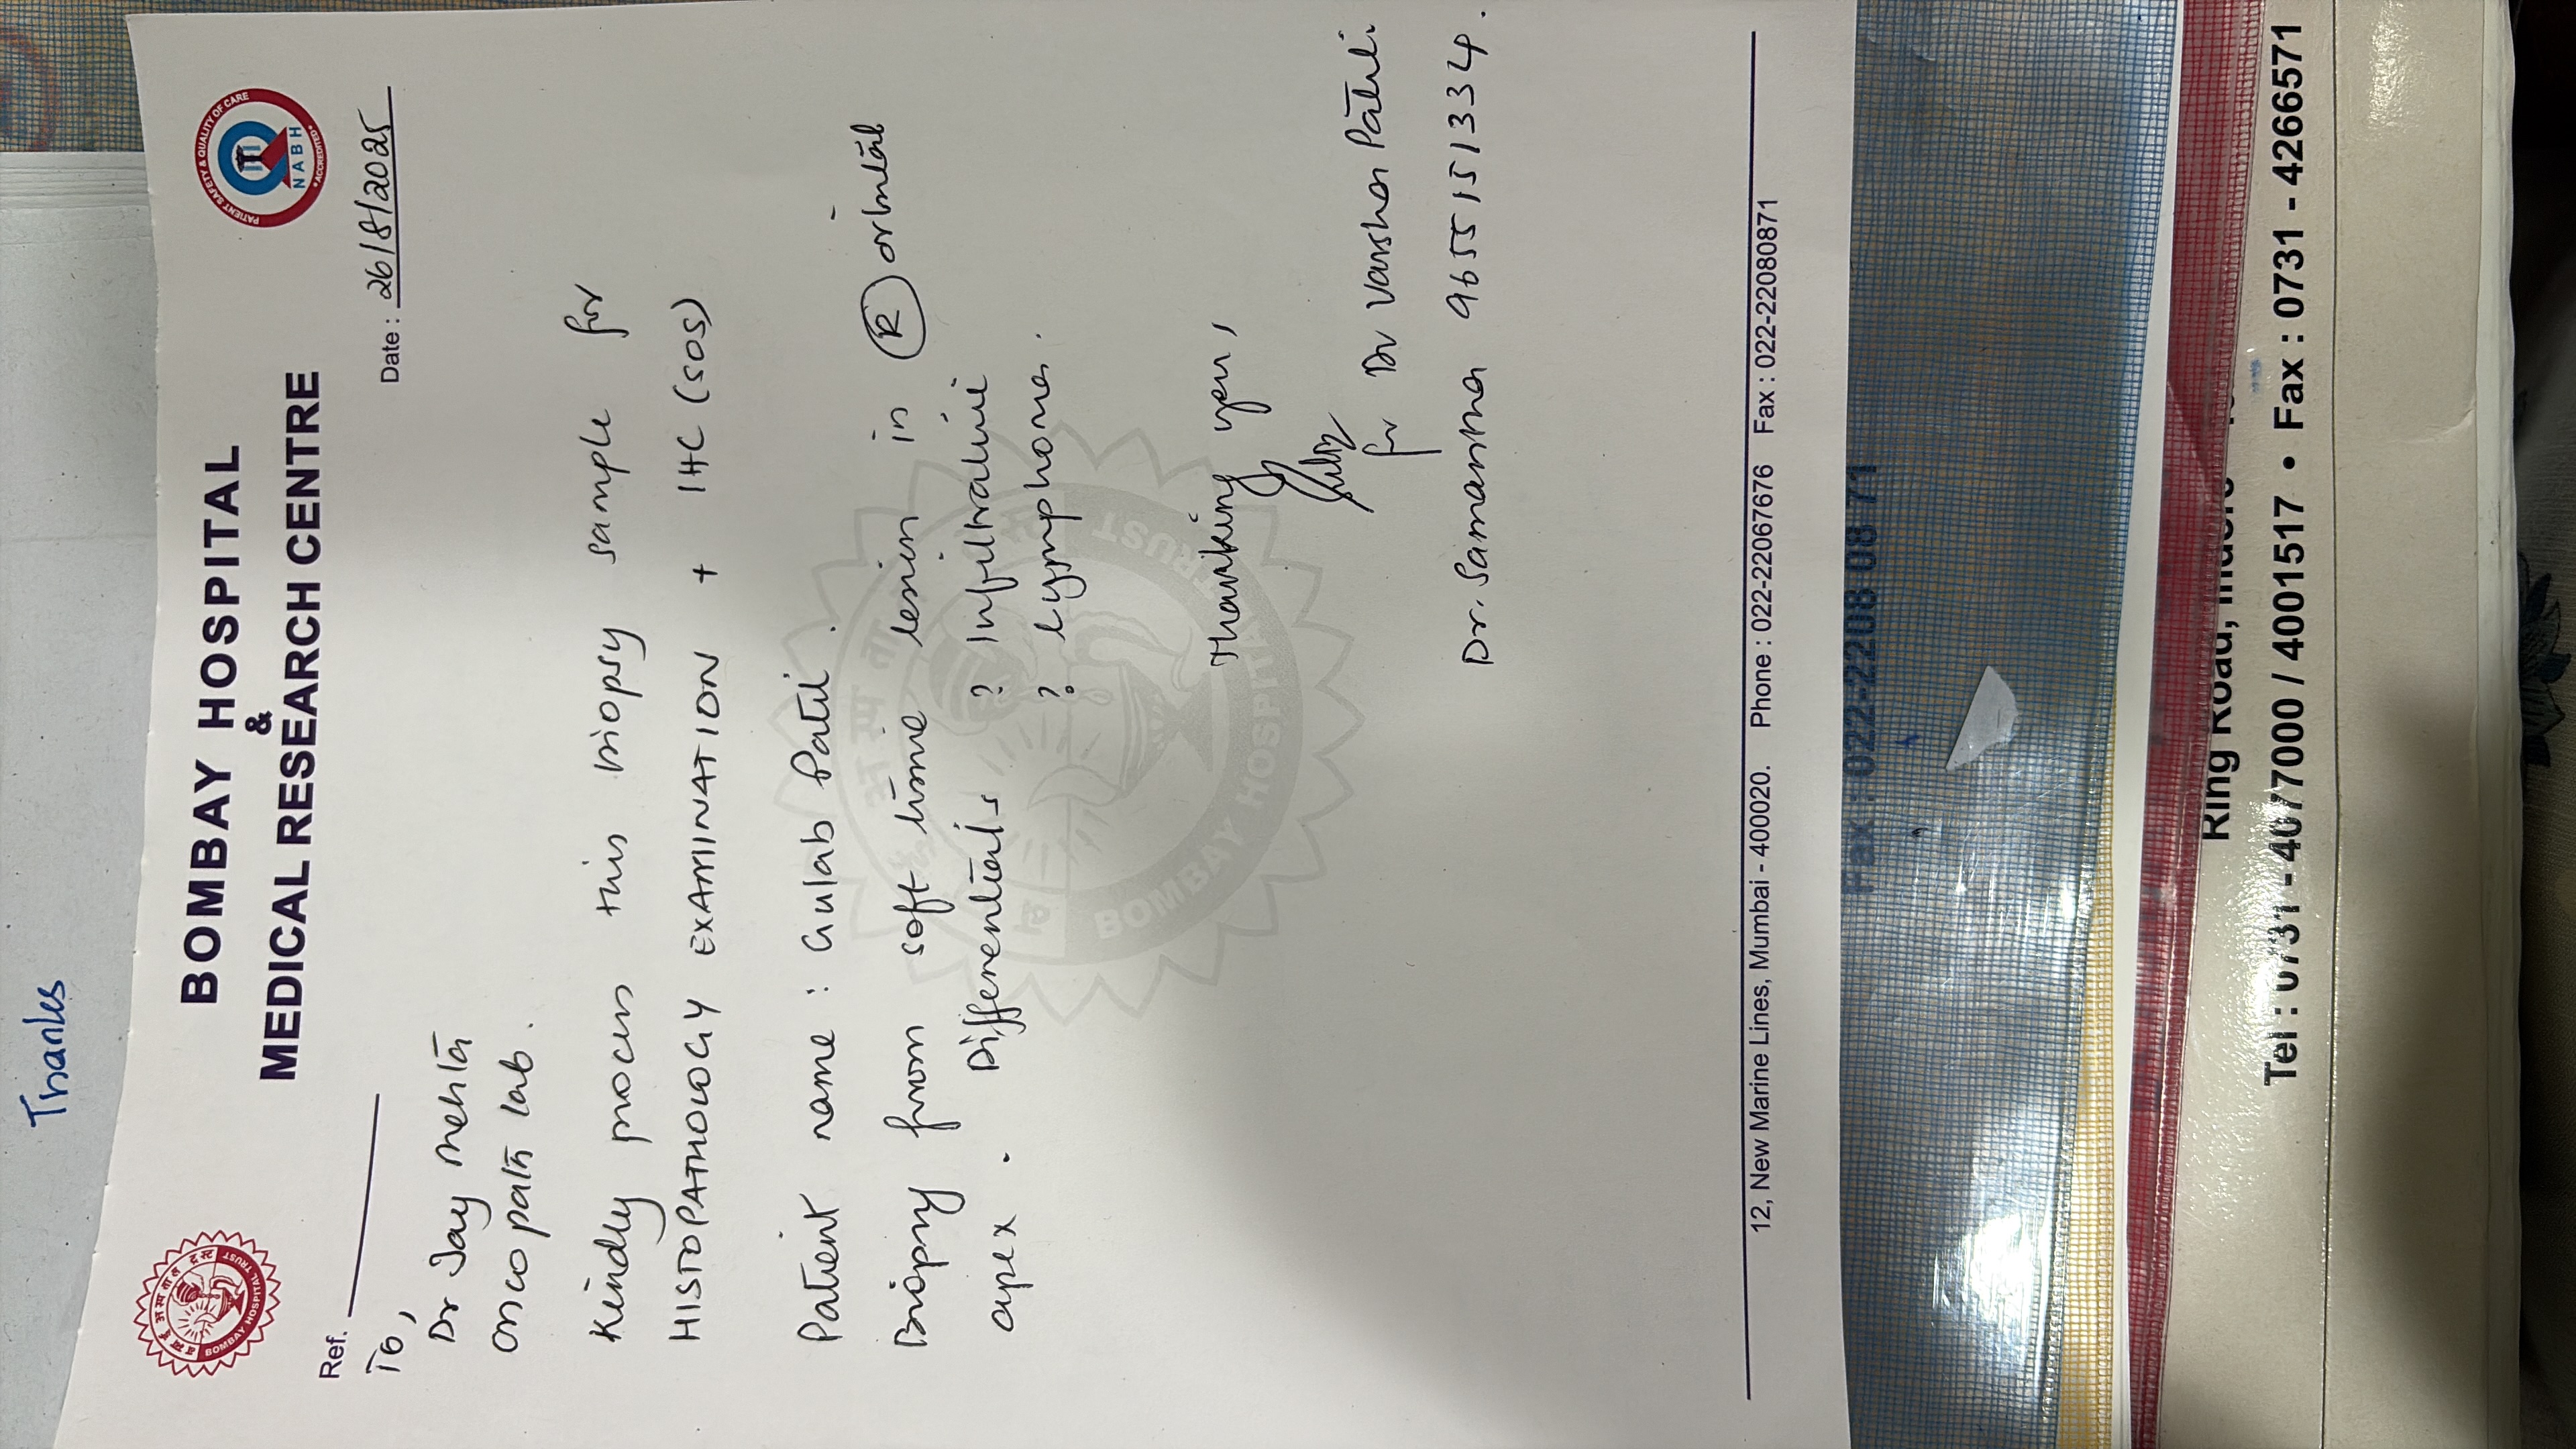 Thanks
BOMBAY HOSPITAL
&
MEDICAL RESEARCH CENTRE
PATIENT SAFETY & QUALITY OF CARE
NABH
•ACCREDITED•
BOMBAY HOSPITAL TRUST
Ref.
Date : 26/8/2025
To,
Dr Jay Mehta
Oncopath lab.
Kindly process this biopsy sample for
HISTOPATHOLOGY EXAMINATION + IHC (SOS)
Patient name : Gulab Patil.
Biopsy from soft tissue lesion in (R) orbital
apex. Differentials ? Infiltrative
? lymphoma.
BOMBAY HOSPITAL TRUST
Thanking you,
for Dr Varsha Patil.
Dr. Samanna 9655151334.
12, New Marine Lines, Mumbai - 400020. Phone : 022-22067676 Fax : 022-22080871
Fax : 022-2208 08 71
Ring Road,
Tel : 0731 - 4077000 / 4001517 • Fax : 0731 - 4266571